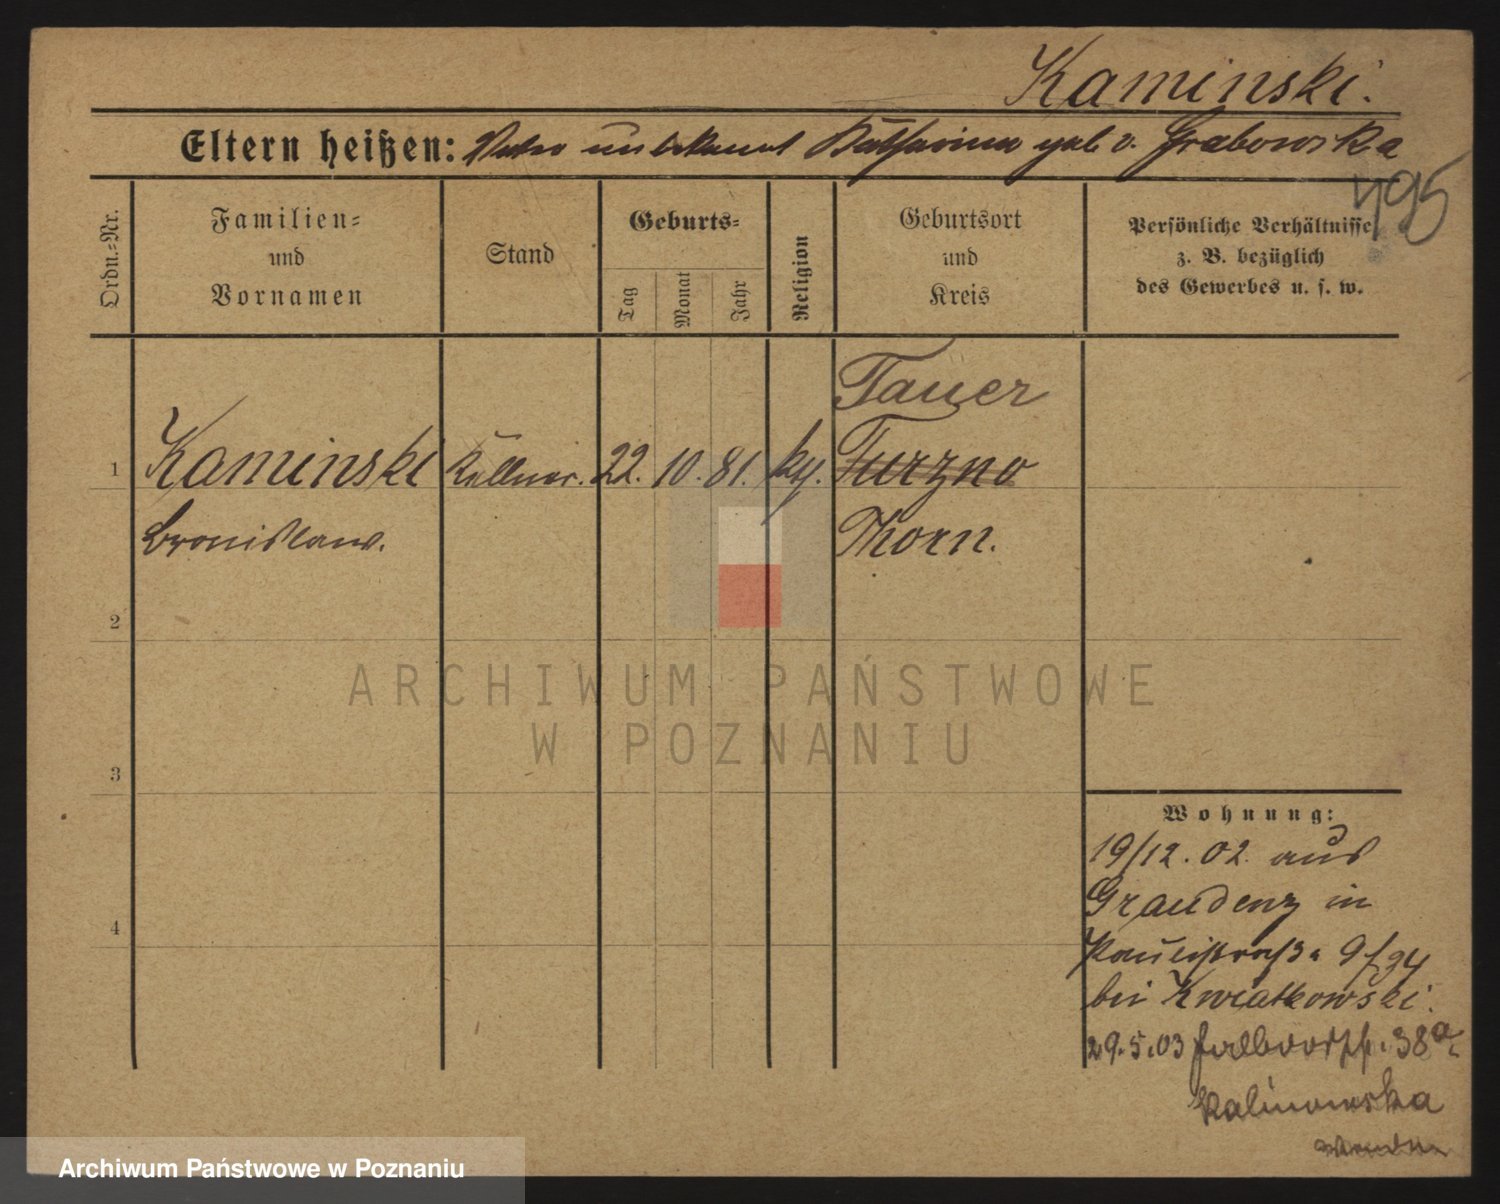 Kaminski.
Eltern heißen: Vater unbekannt Katharina geb. v. Grabowska
495
Ordn.-Nr.
Familien-
und
Vornamen
Stand
Geburts-
Tag
Monat
Jahr
Religion
Geburtsort
und
Kreis
Persönliche Verhältnisse
z. B. bezüglich
des Gewerbes u. s. w.
Tauer
1 Kaminski Kellner. 22. 10. 81. Furzno
Bronislaw. Thorn.
2
3
4
ARCHIWUM PAŃSTWOWE
W POZNANIU
Wohnung:
19/12. 02. aus
Graudenz in
Paulistraße 9
bei Kwiatkowski.
29.5.03 38a
Kalinowska
Archiwum Państwowe w Poznaniu